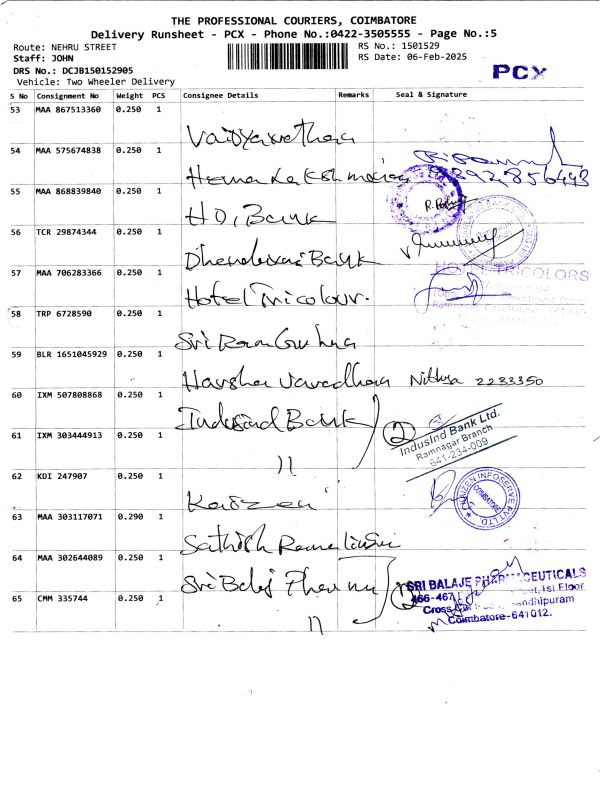 THE PROFESSIONAL COURIERS, COIMBATORE
Delivery Runsheet - PCX - Phone No.:0422-3505555 - Page No.:5
Route: NEHRU STREET
RS No.: 1501529
Staff: JOHN
RS Date: 06-Feb-2025
DRS No.: DCJB150152905
PCX
Vehicle: Two Wheeler Delivery
S No Consignment No Weight PCS Consignee Details Remarks Seal & Signature
53 MAA 867513360 0.250 1
54 MAA 575674838 0.250 1 Hema Lakshmi
55 MAA 868839840 0.250 1 Bank
56 TCR 29874344 0.250 1 Bank
57 MAA 706283366 0.250 1 Hotel Tricolour.
HOTEL TRICOLORS
58 TRP 6728590 0.250 1 Sri
59 BLR 1651045929 0.250 1 Nithya 2233350
60 IXM 507808868 0.250 1 Indusind Bank 2
IndusInd Bank Ltd.
Ramnagar Branch
641-234-009
61 IXM 303444913 0.250 1 11
62 KDI 247907 0.250 1 Kaizen
KAIZEN INFOSERVE PVT LTD.
COIMBATORE
63 MAA 303117071 0.290 1 Sathish
64 MAA 302644089 0.250 1 Sri Balaj Pharma 2
SRI BALAJE PHARMACEUTICALS
1st Floor
Cross
Gandhipuram
Coimbatore-641012.
65 CMM 335744 0.250 1 11